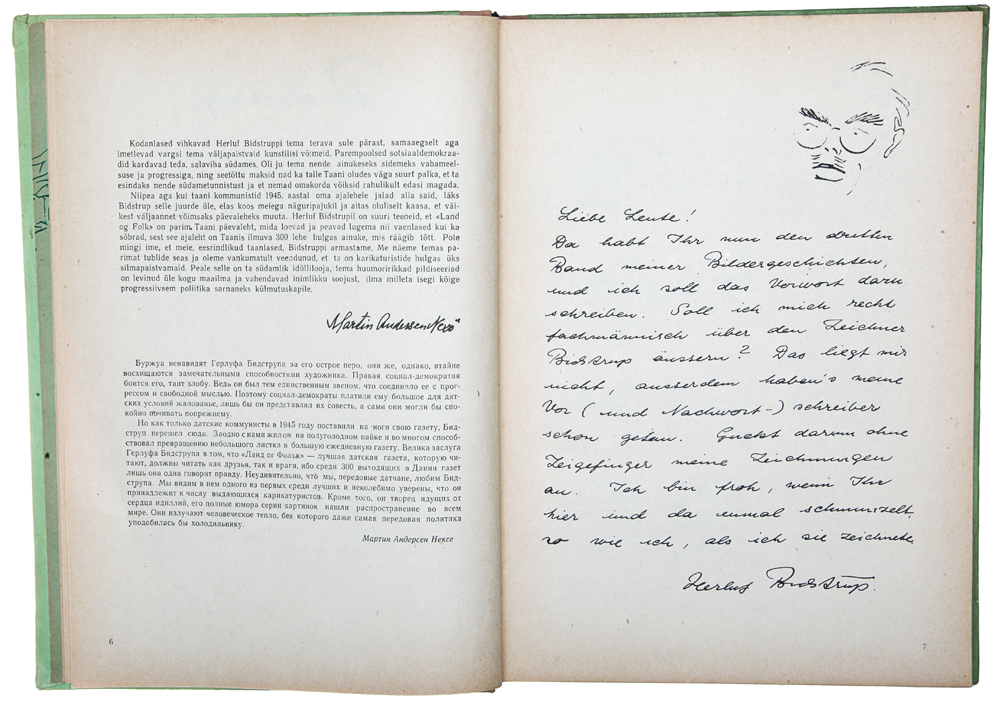 Kodanlased vihkavad Herluf Bidstruppi tema terava sule pärast, samaaegselt aga
imetlevad vargsi tema väljapaistvaid kunstilisi võimeid. Parempoolsed sotsiaaldemokraa-
did kardavad teda, salaviha südames. Oli ju tema nende ainukeseks sidemeks vabameel-
suse ja progressiga, ning seetõttu maksid nad ka talle Taani oludes väga suurt palka, et ta
esindaks nende südametunnistust ja et nemad omakorda võiksid rahulikult edasi magada.
Niipea aga kui taani kommunistid 1945. aastal oma ajalehele jalad alla said, läks
Bidstrup selle juurde üle, elas koos meiega näguripajukil ja aitas oluliselt kaasa, et väi-
kest väljaannet võimsaks päevaleheks muuta. Herluf Bidstrupil on suuri teeneid, et «Land
og Folk» on parim Taani päevaleht, mida loevad ja peavad lugema nii vaenlased kui ka
sõbrad, sest see ajaleht on Taanis ilmuva 300 lehe hulgas ainuke, mis räägib tõtt. Pole
mingi ime, et meie, eesrindlikud taanlased, Bidstruppi armastame. Me näeme temas pa-
rimat tublide seas ja oleme vankumatult veendunud, et ta on karikaturistide hulgas üks
silmapaistvamaid. Peale selle on ta südamlik idüllilooja, tema huumoririkkad pildiseeriad
on levinud üle kogu maailma ja vahendavad inimlikku soojust, ilma milleta isegi kõige
progressiivsem poliitika sarnaneks külmutuskapile.
Martin Andersen Nexö
Буржуа ненавидят Герлуфа Бидструпа за его острое перо, они же, однако, втайне
восхищаются замечательными способностями художника. Правая социал-демократия
боится его, таит злобу. Ведь он был тем единственным звеном, что соединяло ее с про-
грессом и свободной мыслью. Поэтому социал-демократы платили ему большое для дат-
ских условий жалованье, лишь бы он представлял их совесть, а сами они могли бы спо-
койно почивать попрежнему.
Но как только датские коммунисты в 1945 году поставили на ноги свою газету, Бид-
струп перешел сюда. Заодно с нами жил он на полуголодном пайке и во многом способ-
ствовал превращению небольшого листка в большую ежедневную газету. Велика заслуга
Герлуфа Бидструпа в том, что «Ланд ог Фольк» — лучшая датская газета, которую чи-
тают, должны читать как друзья, так и враги, ибо среди 300 выходящих в Дании газет
лишь она одна говорит правду. Неудивительно, что мы, передовые датчане, любим Бид-
струпа. Мы видим в нем одного из первых среди лучших и неколебимо уверены, что он
принадлежит к числу выдающихся карикатуристов. Кроме того, он творец идущих от
сердца идиллий, его полные юмора серии картинок нашли распространение во всем
мире. Они излучают человеческое тепло, без которого даже самая передовая политика
уподобилась бы холодильнику.
Мартин Андерсен Нексе
6
Liebe Leute!
Da habt Ihr nun den dritten
Band meiner Bildergeschichten,
und ich soll das Vorwort darin
schreiben. Soll ich mich recht
fachmännisch über den Zeichner
Bidstrup äussern? Das liegt mir
nicht, ausserdem haben's meine
Vor (und Nachwort-) schreiber
schon getan. Guckt darum ohne
Zeigefinger meine Zeichnungen
an. Ich bin froh, wenn Ihr
hier und da einmal schmunzelt,
so wie ich, als ich sie zeichnete
Herluf Bidstrup.
7